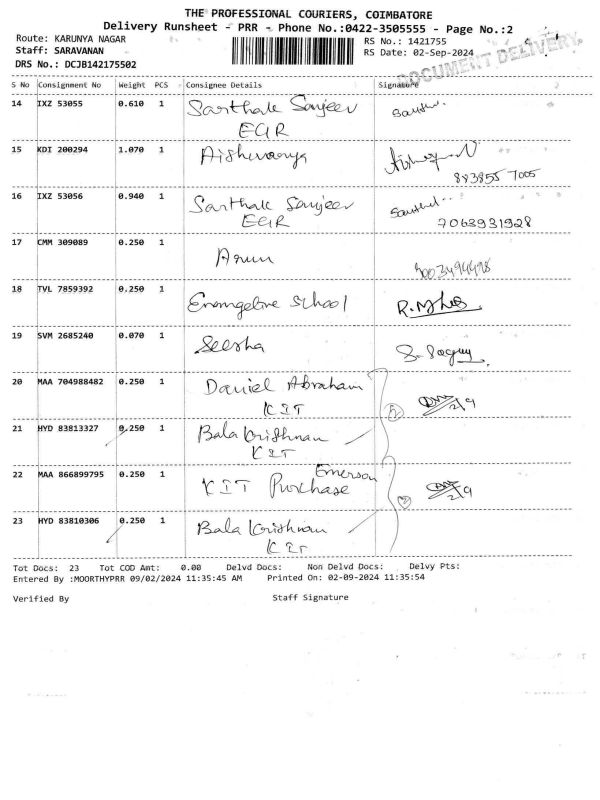 THE PROFESSIONAL COURIERS, COIMBATORE
Delivery Runsheet - PRR - Phone No.:0422-3505555 - Page No.:2
Route: KARUNYA NAGAR
RS No.: 1421755
Staff: SARAVANAN
RS Date: 02-Sep-2024
DRS No.: DCJB142175502
DOCUMENT DELIVERY
S No Consignment No Weight PCS Consignee Details Signature
14 IXZ 53055 0.610 1 Sarthak Sanjeev
EGR
15 KDI 200294 1.070 1 Aishwarya
883855 7005
16 IXZ 53056 0.940 1 Sarthak Sanjeev
EGR 7063931928
17 CMM 309089 0.250 1 Arun
18 TVL 7859392 0.250 1 Evangeline School
19 SVM 2685240 0.070 1 Seesha
20 MAA 704988482 0.250 1 Daniel Abraham
KIT 2/9
21 HYD 83813327 0.250 1 Bala Krishnan
KIT
22 MAA 866899795 0.250 1 Emerson
KIT Purchase 2/9
23 HYD 83810306 0.250 1 Bala Krishnan
KIT
Tot Docs: 23 Tot COD Amt: 0.00 Delvd Docs: Non Delvd Docs: Delvy Pts:
Entered By :MOORTHYPRR 09/02/2024 11:35:45 AM Printed On: 02-09-2024 11:35:54
Verified By Staff Signature